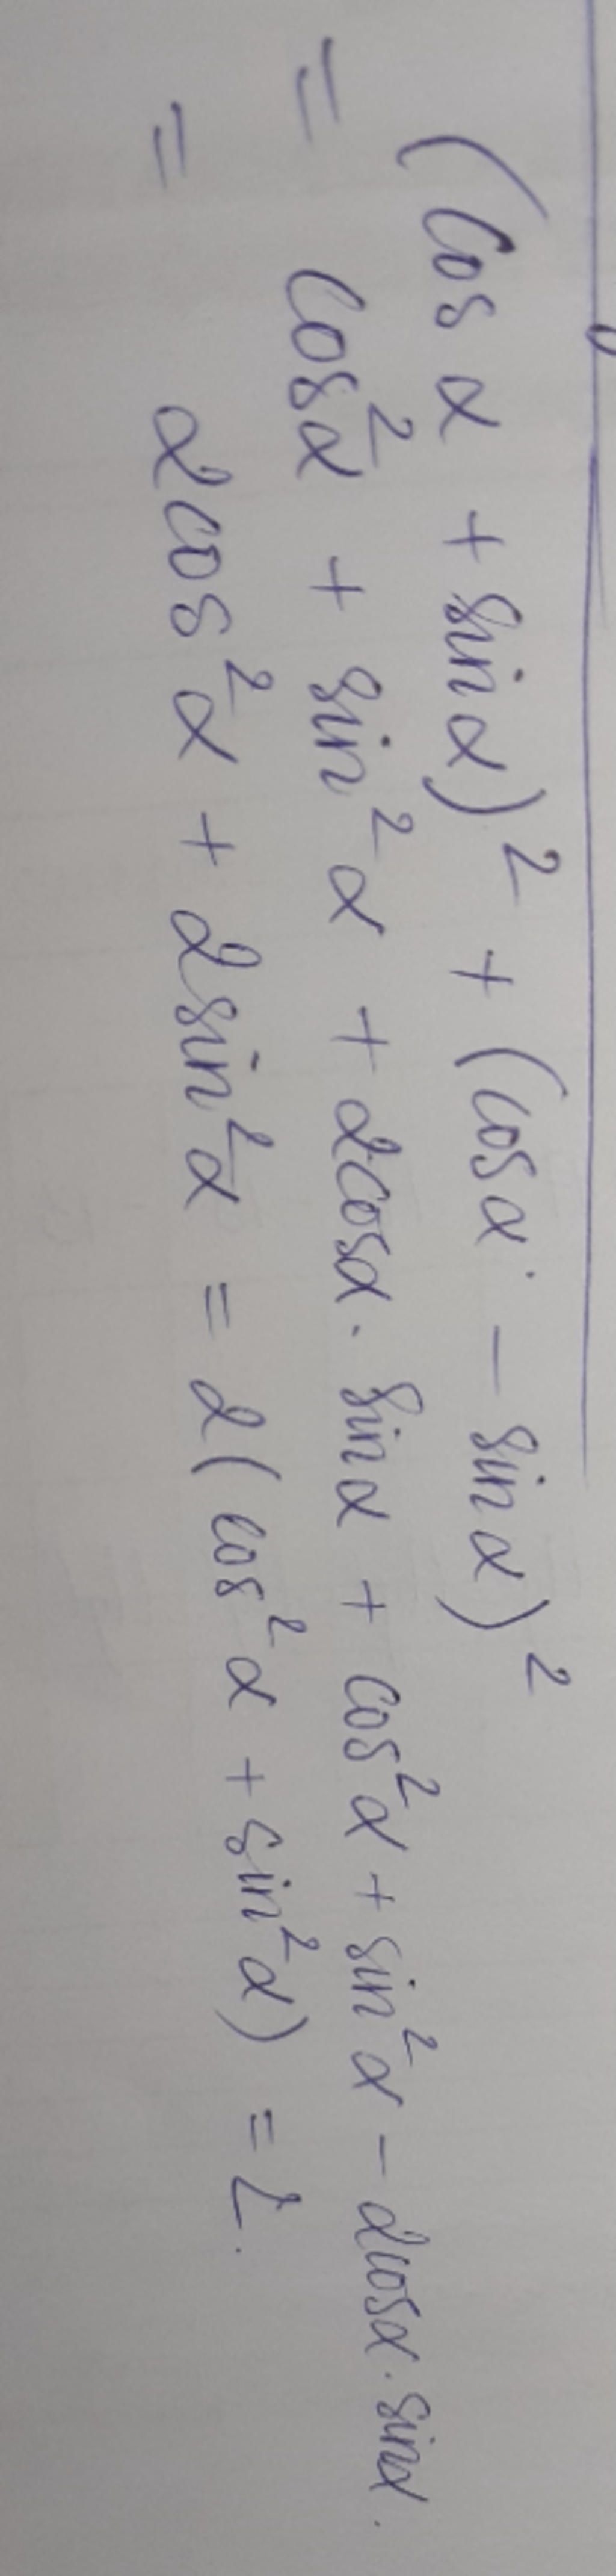 (cos α + sin α)² + (cos α - sin α)²
= cos²α + sin²α + 2cosα · sinα + cos²α + sin²α - 2cosα · sinα.
= 2cos²α + 2sin²α = 2(cos²α + sin²α) = 2.